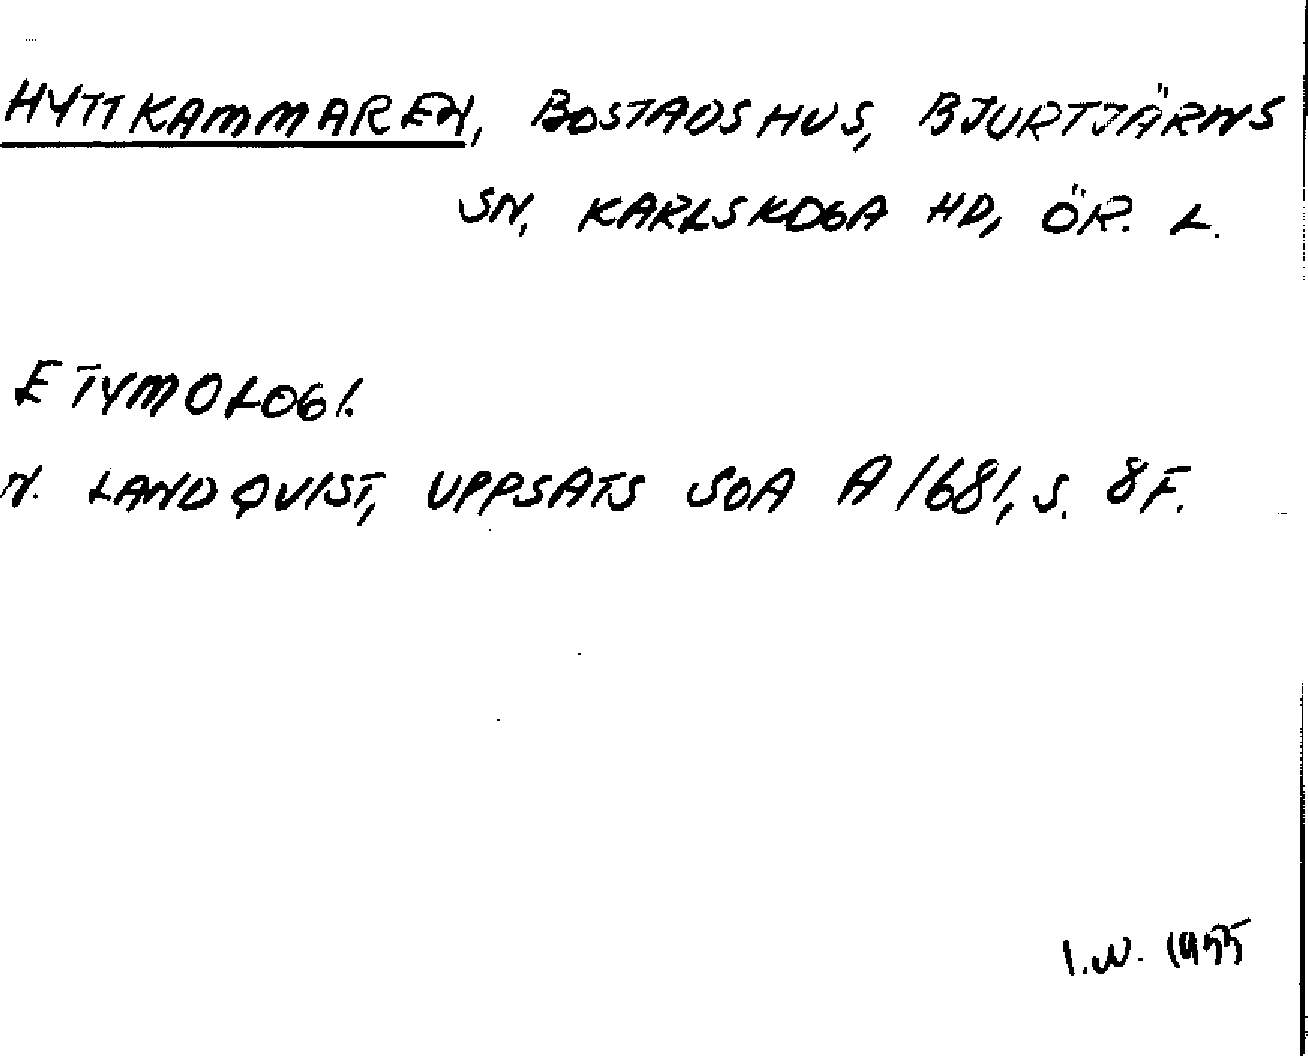 HYTTKAMMAREN, BOSTADSHUS, BJURTJÄRNS
SN, KARLSKOGA HD, ÖR. L.
ETYMOLOGI.
N. LANDQVIST, UPPSATS SOA A 1681, S. 8 F.
I.W. 1955